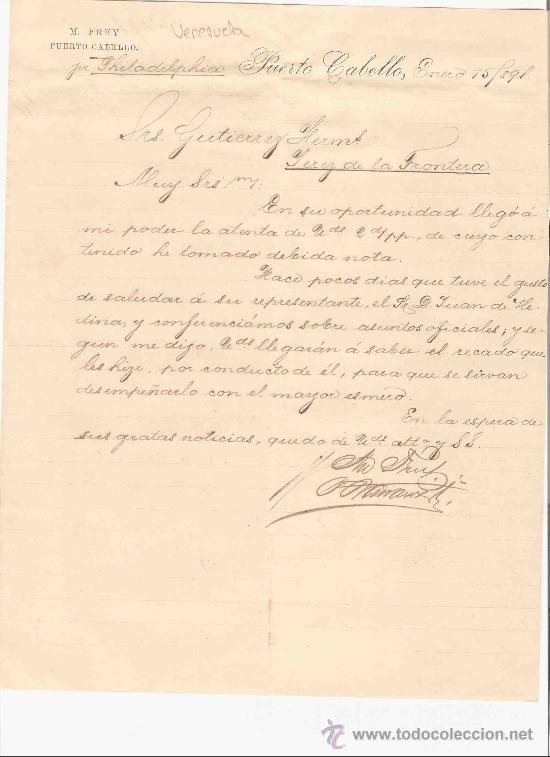 M. FREY
PUERTO CABELLO.
Venezuela
pr Philadelphia Puerto Cabello, Enero 15/891.
Srs. Gutierrez Herms
Jerez de la Frontera
Muy Srs mⱼ:
En su oportunidad llegó á
mi poder la atenta de Uds 2 d/pp., de cuyo con-
tenido he tomado debida nota.
Hace pocos dias que tuve el gusto
de saludar á su representante, el Sr. D. Juan de Me-
dina, y conferenciámos sobre asuntos oficiales; y se-
gun me dijo, Uds llegarán á saber el recado que
les hize, por conducto de él, para que se sirvan
desempeñarlo con el mayor esmero.
En la espera de
sus gratas noticias, quedo de Uds atto y SS.
Frey
todocoleccion
www.todocoleccion.net